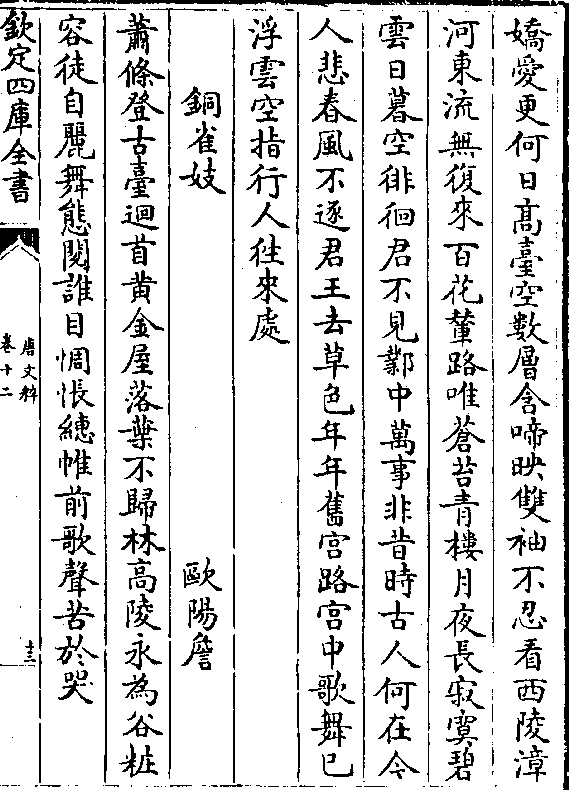 嬌愛更何日髙臺空數層含啼映雙袖不忍看西陵漳
河東流無復來百花輦路唯蒼苔青樓月夜長寂寞碧
雲日暮空徘徊君不見鄴中萬事非昔時古人何在今
人悲春風不逐君王去草色年年舊宫路宫中歌舞已
浮雲空指行人往來處
銅雀妓　歐陽詹
蕭條登古臺迴首黄金屋落葉不歸林高陵永為谷粧
容徒自麗舞態閱誰目惆悵繐帷前歌聲苦於哭
欽定四庫全書
唐文粹
卷十二
十三